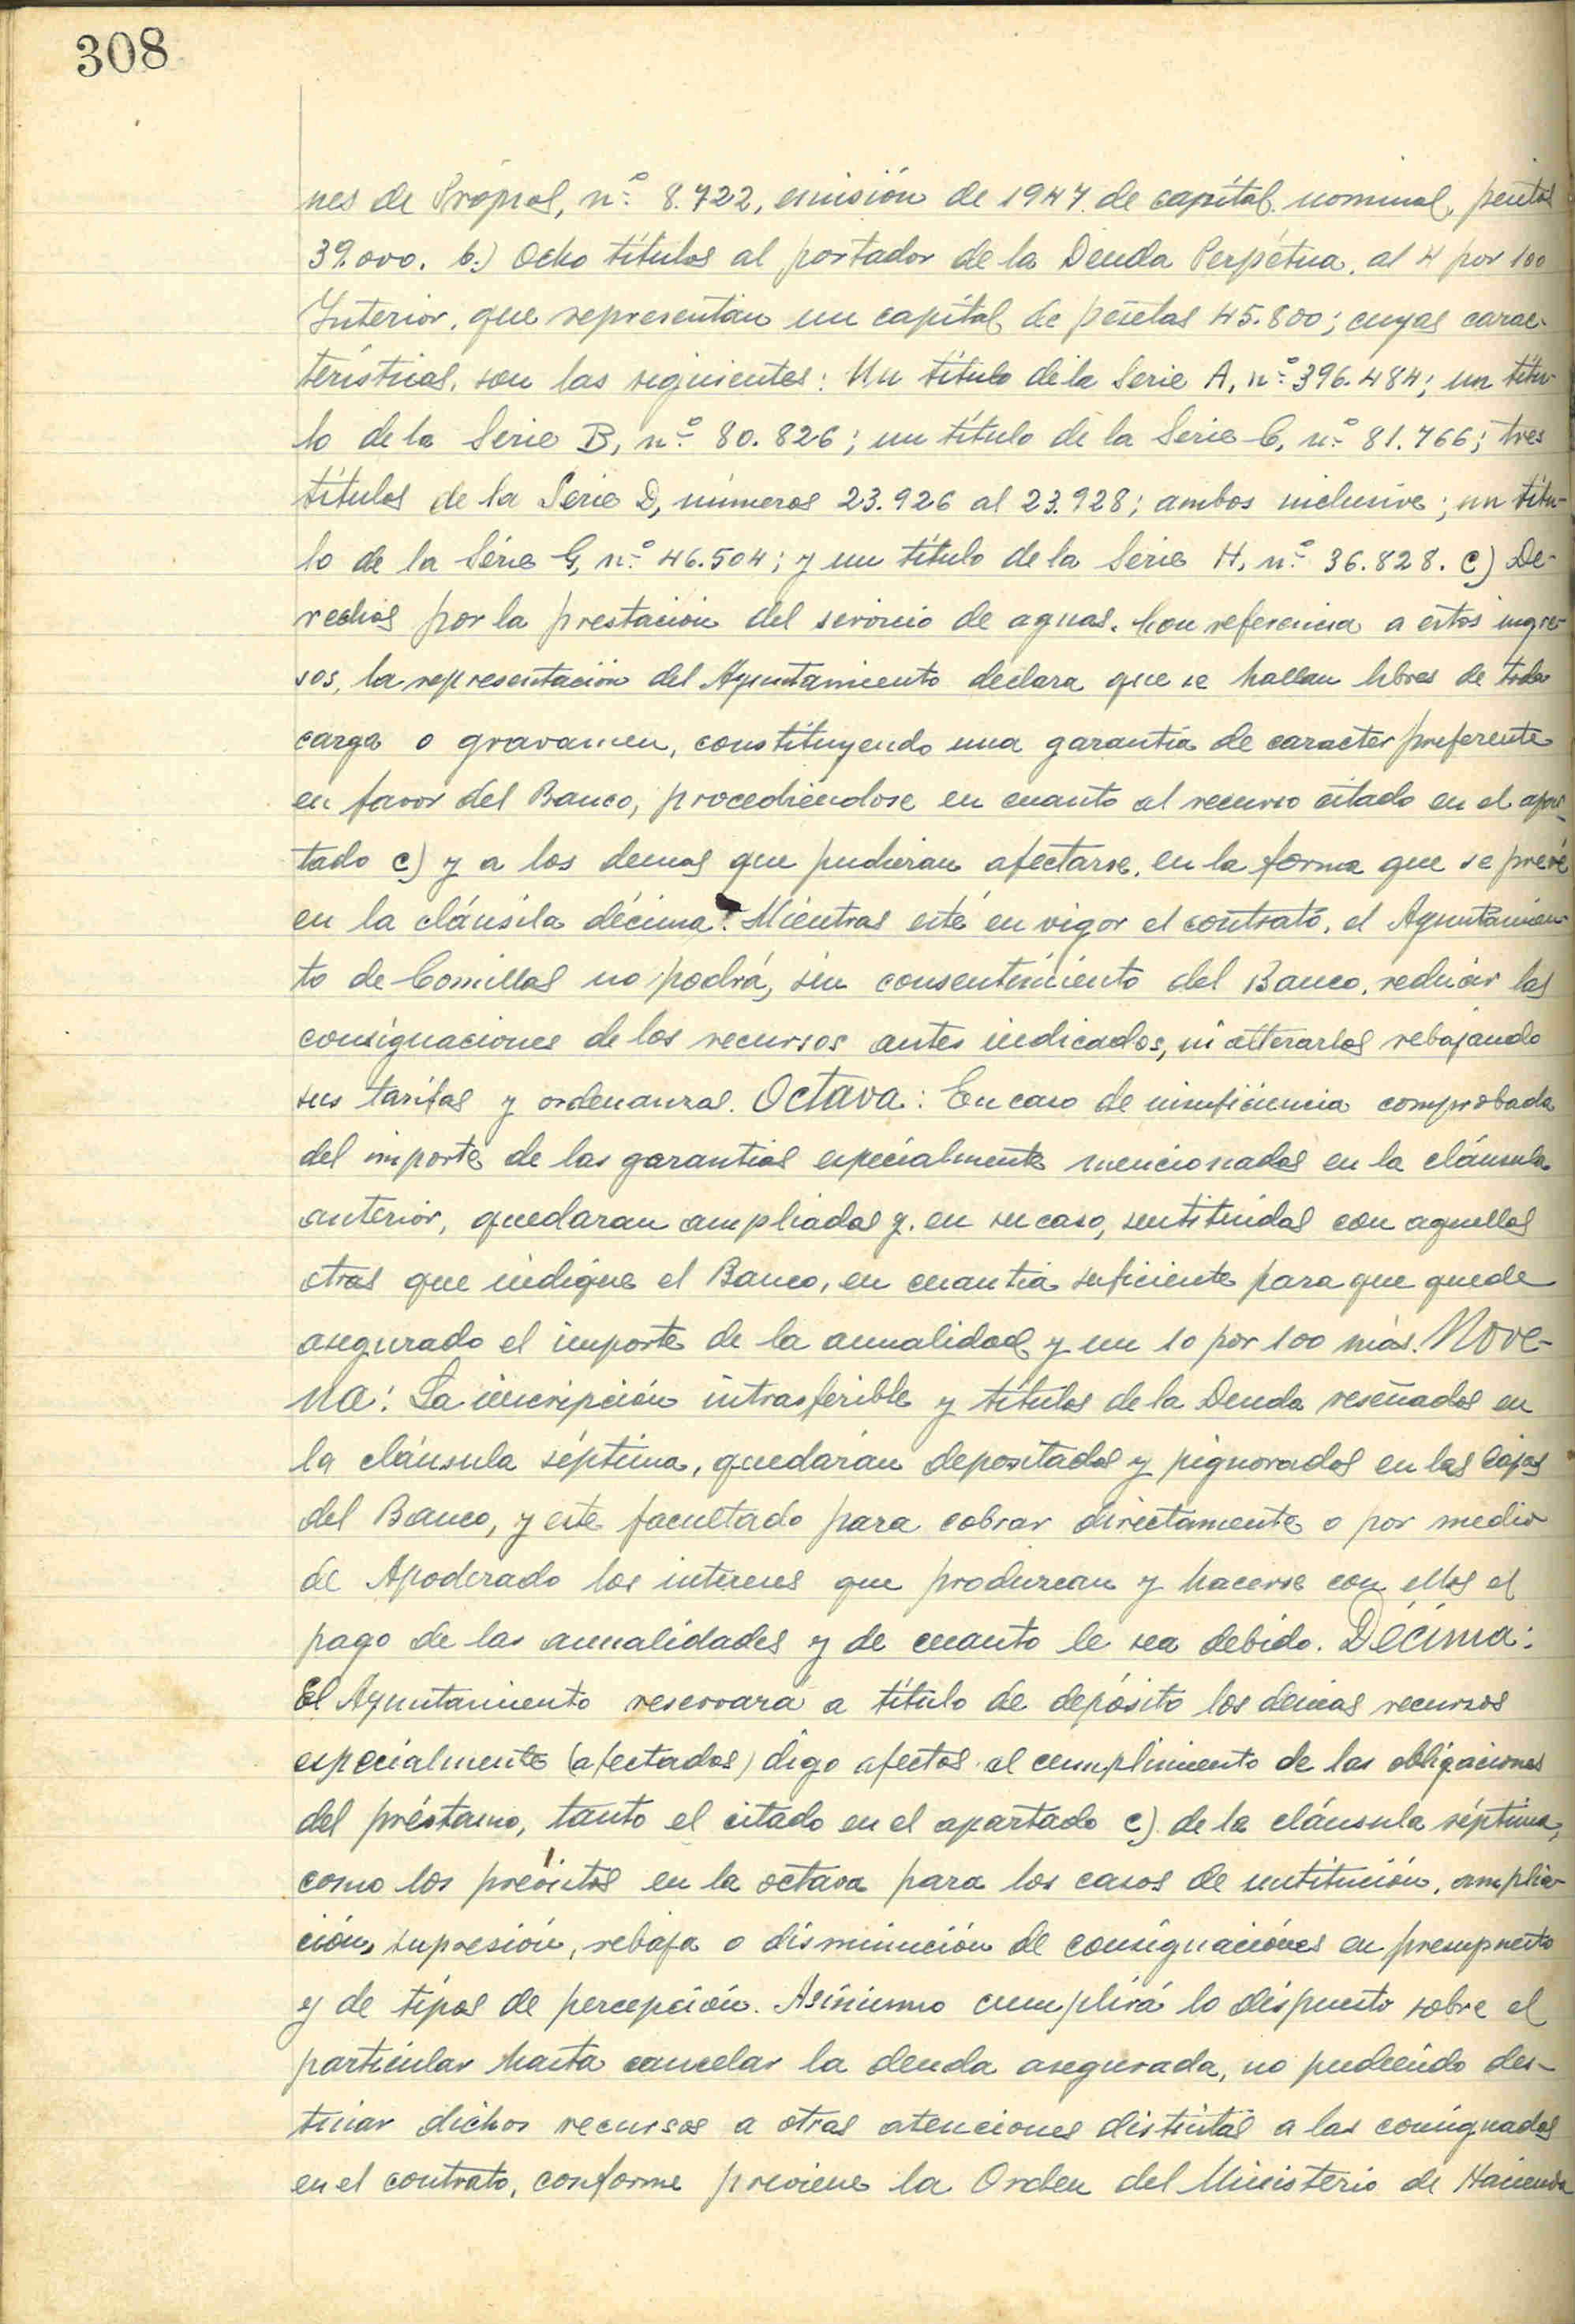 308
nes de Própios, n.º 8.722, emisión de 1947 de capítal nominal, pesetas
39.000. b.) Ocho títulos al portador de la Deuda Perpétua, al 4 por 100
Interior, que representan un capítal de pesetas 45.800; cuyas carac-
terísticas, son las siguientes: Un título de la Serie A, n.º 396.484; un títu-
lo de la Serie B, n.º 80.826; un título de la Serie C, n.º 81.766; tres
títulos de la Serie D, números 23.926 al 23.928; ambos inclusive; un títu-
lo de la Série G, n.º 46.504; y un título de la Serie H, n.º 36.828. c) De-
rechos por la prestación del servicio de aguas. Con referencia a estos ingre-
sos, la representación del Ayuntamiento declara que se hallan libres de toda
carga o gravamen, constítuyendo una garantía de caracter preferente
en favor del Banco, procediéndose en cuanto al recurso citado en el apar-
tado c) y a los demas que pudieran afectarse, en la forma que se prevé
en la cláusila décima. Mientras esté en vigor el contrato, el Ayuntamien-
to de Comillas no podrá, sin consentimiento del Banco, reducir las
consignaciones de los recursos antes indicados, ni alterarlos rebajando
sus tarifas y ordenanzas. Octava: En caso de insuficiencia comprobada
del importe de las garantías especialmente mencionadas en la cláusula
anterior, quedaran ampliadas y, en su caso, sustituídas con aquellas
otras que indique el Banco, en cuantía suficiente para que quede
asegurado el importe de la anualidad y un 10 por 100 más. Nove-
na: La inscripción intrasferible y títulos de la Deuda reseñados en
la cláusula séptima, quedarán depositados y pignorados en las Cajas
del Banco, y este facultado para cobrar directamente o por medio
de Apoderado los intereses que produzcan y hacerse con ellos el
pago de las anualidades y de cuanto le sea debido. Décima:
El Ayuntamiento reservará a título de depósito los demas recursos
especialmente (afectados) digo afectos al cumplimiento de las obligaciones
del préstamo, tanto el citado en el apartado c) de la cláusula séptima,
como los previstos en la octava para los casos de sustitución, amplia-
ción, supresión, rebaja o disminución de consignaciónes en presupuesto
y de tipos de percepción. Asinismo cumplirá lo dispuesto sobre el
particular hasta cancelar la deuda asegurada, no pudiendo des-
tinar dichos recursos a otras atenciones distintas a las consignadas
en el contrato, conforme previene la Orden del Ministerio de Hacienda